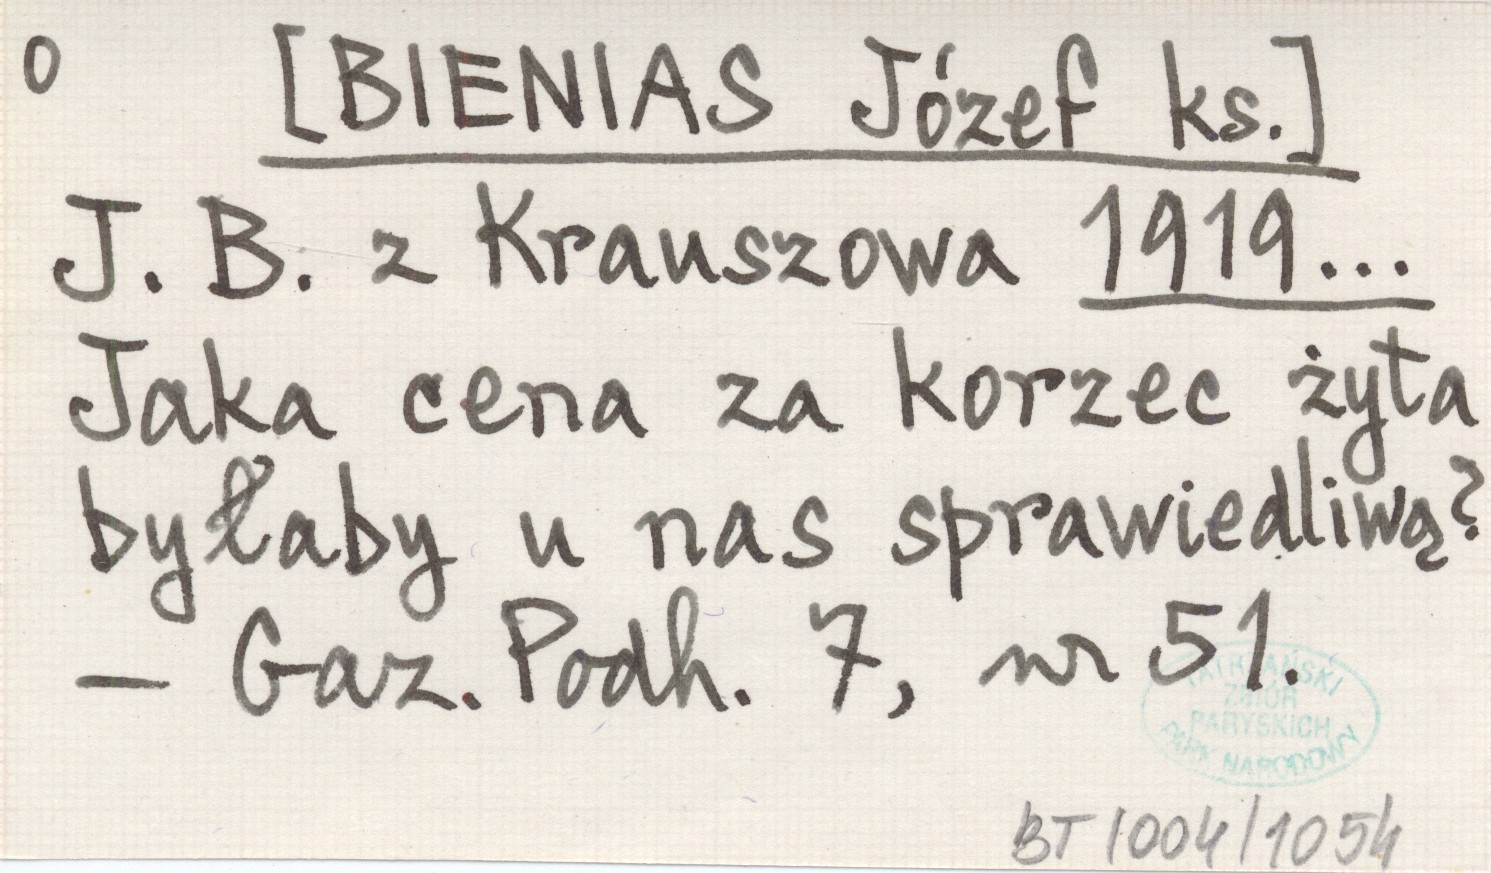 o [BIENIAS Józef ks.]
J. B. z Krauszowa 1919...
Jaka cena za korzec żyta
byłaby u nas sprawiedliwą?
— Gaz. Podh. 7, nr 51.
TATRZAŃSKI
ZBIÓR
PARYSKICH
PARK NARODOWY
BT/004/1054